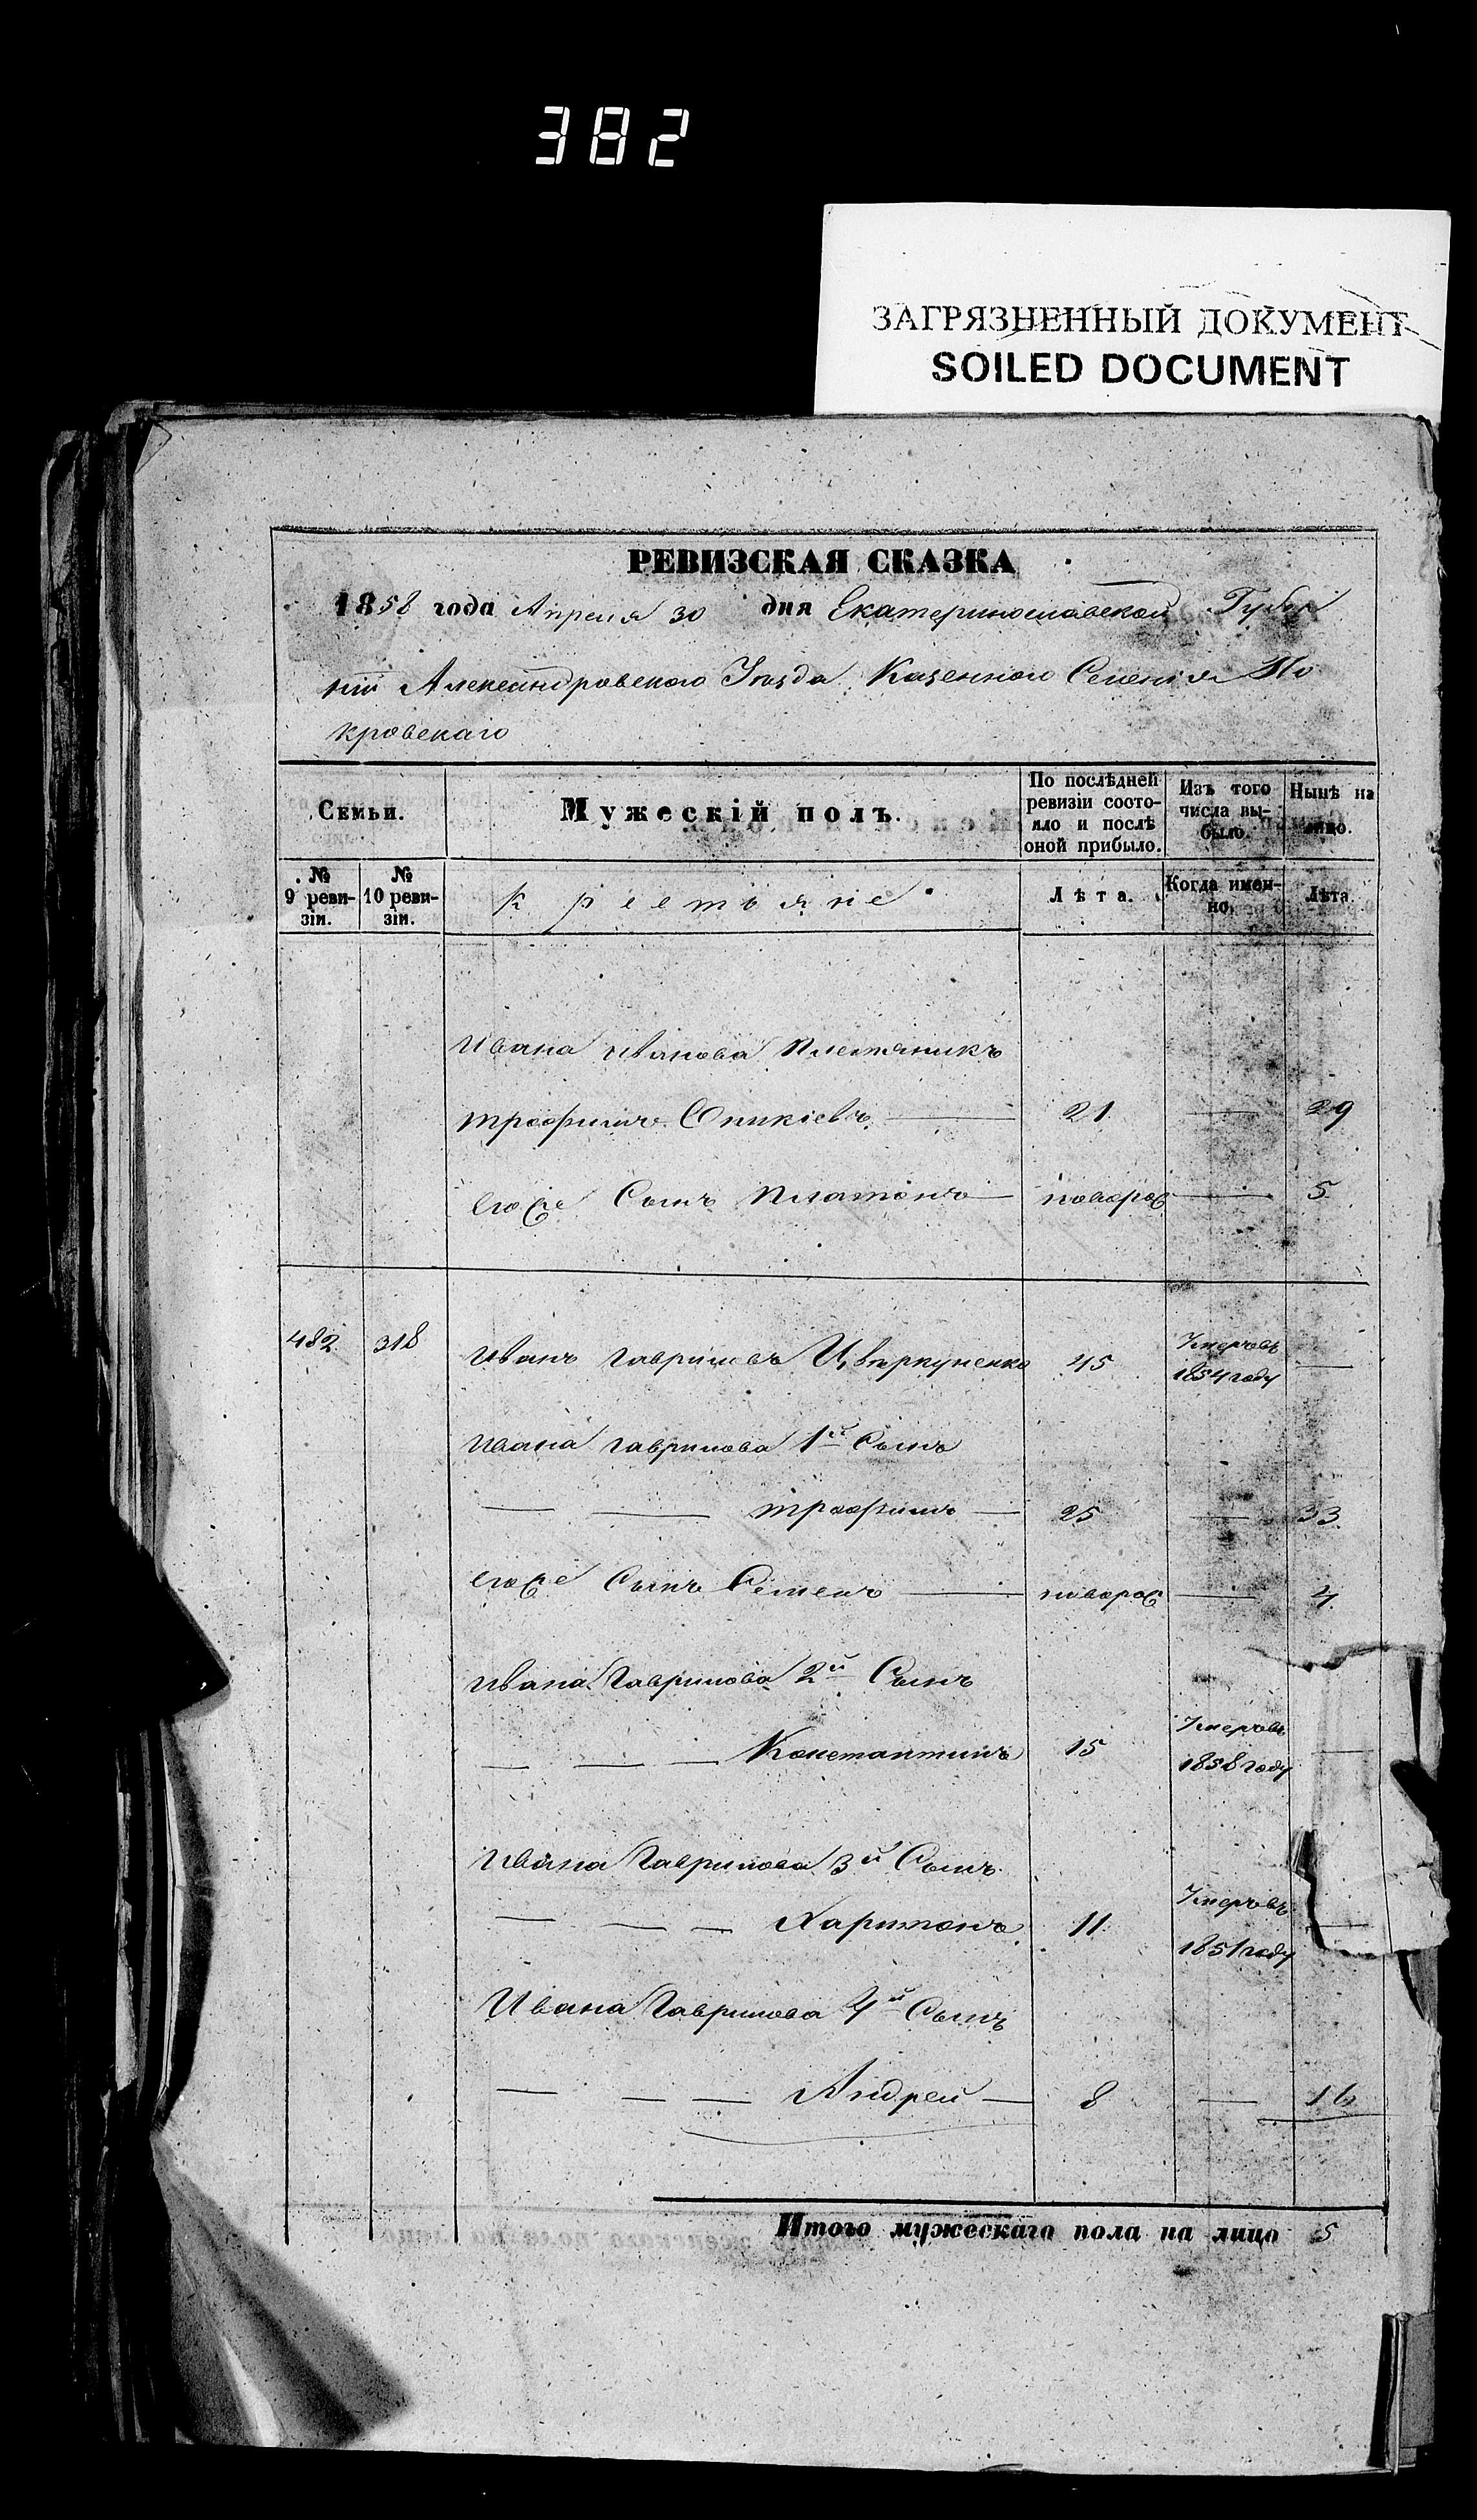 382
ЗАГРЯЗНЕННЫЙ ДОКУМЕНТ
SOILED DOCUMENT
РЕВИЗСКАЯ СКАЗКА
1858 года Апреля 30 дня Екатеринославской Губер
ніи Александровского Уѣзда, Казенного Селенія По
кровскаго
Семьи.
Мужескій полъ.
По послѣдней ревизіи состояло и послѣ оной прибыло.
Изъ того числа выбыло.
Нынѣ на лицо.
№ 9 ревизіи.
№ 10 ревизіи.
Крестьяне
Лѣта.
Когда именно.
Лѣта.
Ивана Иванова племяникъ
Трофимъ 21 — 29
егоже Сынъ Платонъ — новорож — 5
482 318 Иванъ Гавриловъ Цвѣркуненко 45 Умеръ въ 1854 году —
Ивана Гаврилова 1й Сынъ
— — Трофимъ — 25 — 33
егоже Сынъ Семенъ — новорож — 4
Ивана Гаврилова 2й Сынъ
— — — Константинъ 15 Умеръ въ 1858 году —
Ивана Гаврилова 3й Сынъ
— — — Харитонъ 11 Умеръ въ 1851 году —
Ивана Гаврилова 4й Сынъ
— — — Андрей — 8 — 16
Итого мужескаго пола на лицо 5